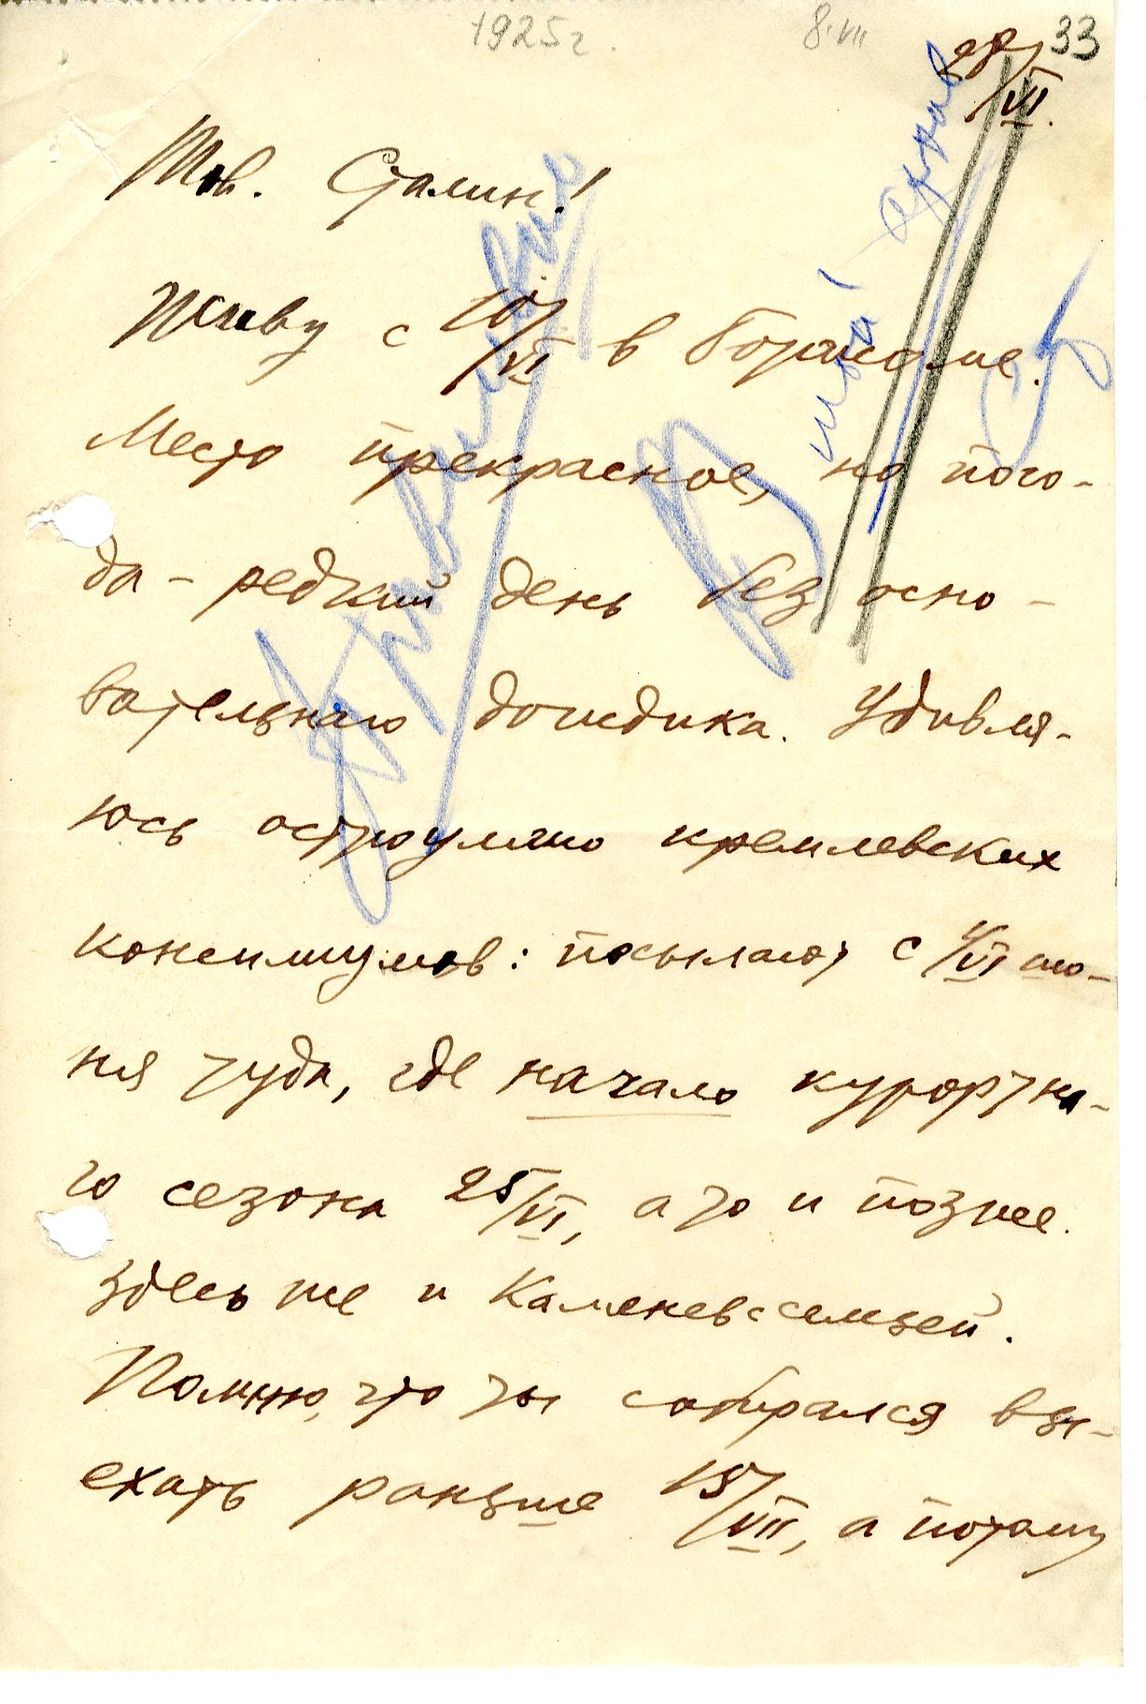 1925 г.
8.VII
33
28/VI.
Тов. Сталин!
Живу с 10/VI в Боржоме.
Место прекрасное, но пого-
да – редкий день без осно-
вательнаго дождика. Удивля-
юсь остроумию кремлевских
консилиумов: посылают с 1/VI ме-
ня туда, где начало курортна-
го сезона 25/VI, а то и позже.
Здесь же и Каменев с семьей.
Помню, что ты собирался вы-
ехать раньше 15/VII, а потому
архив
мой архив